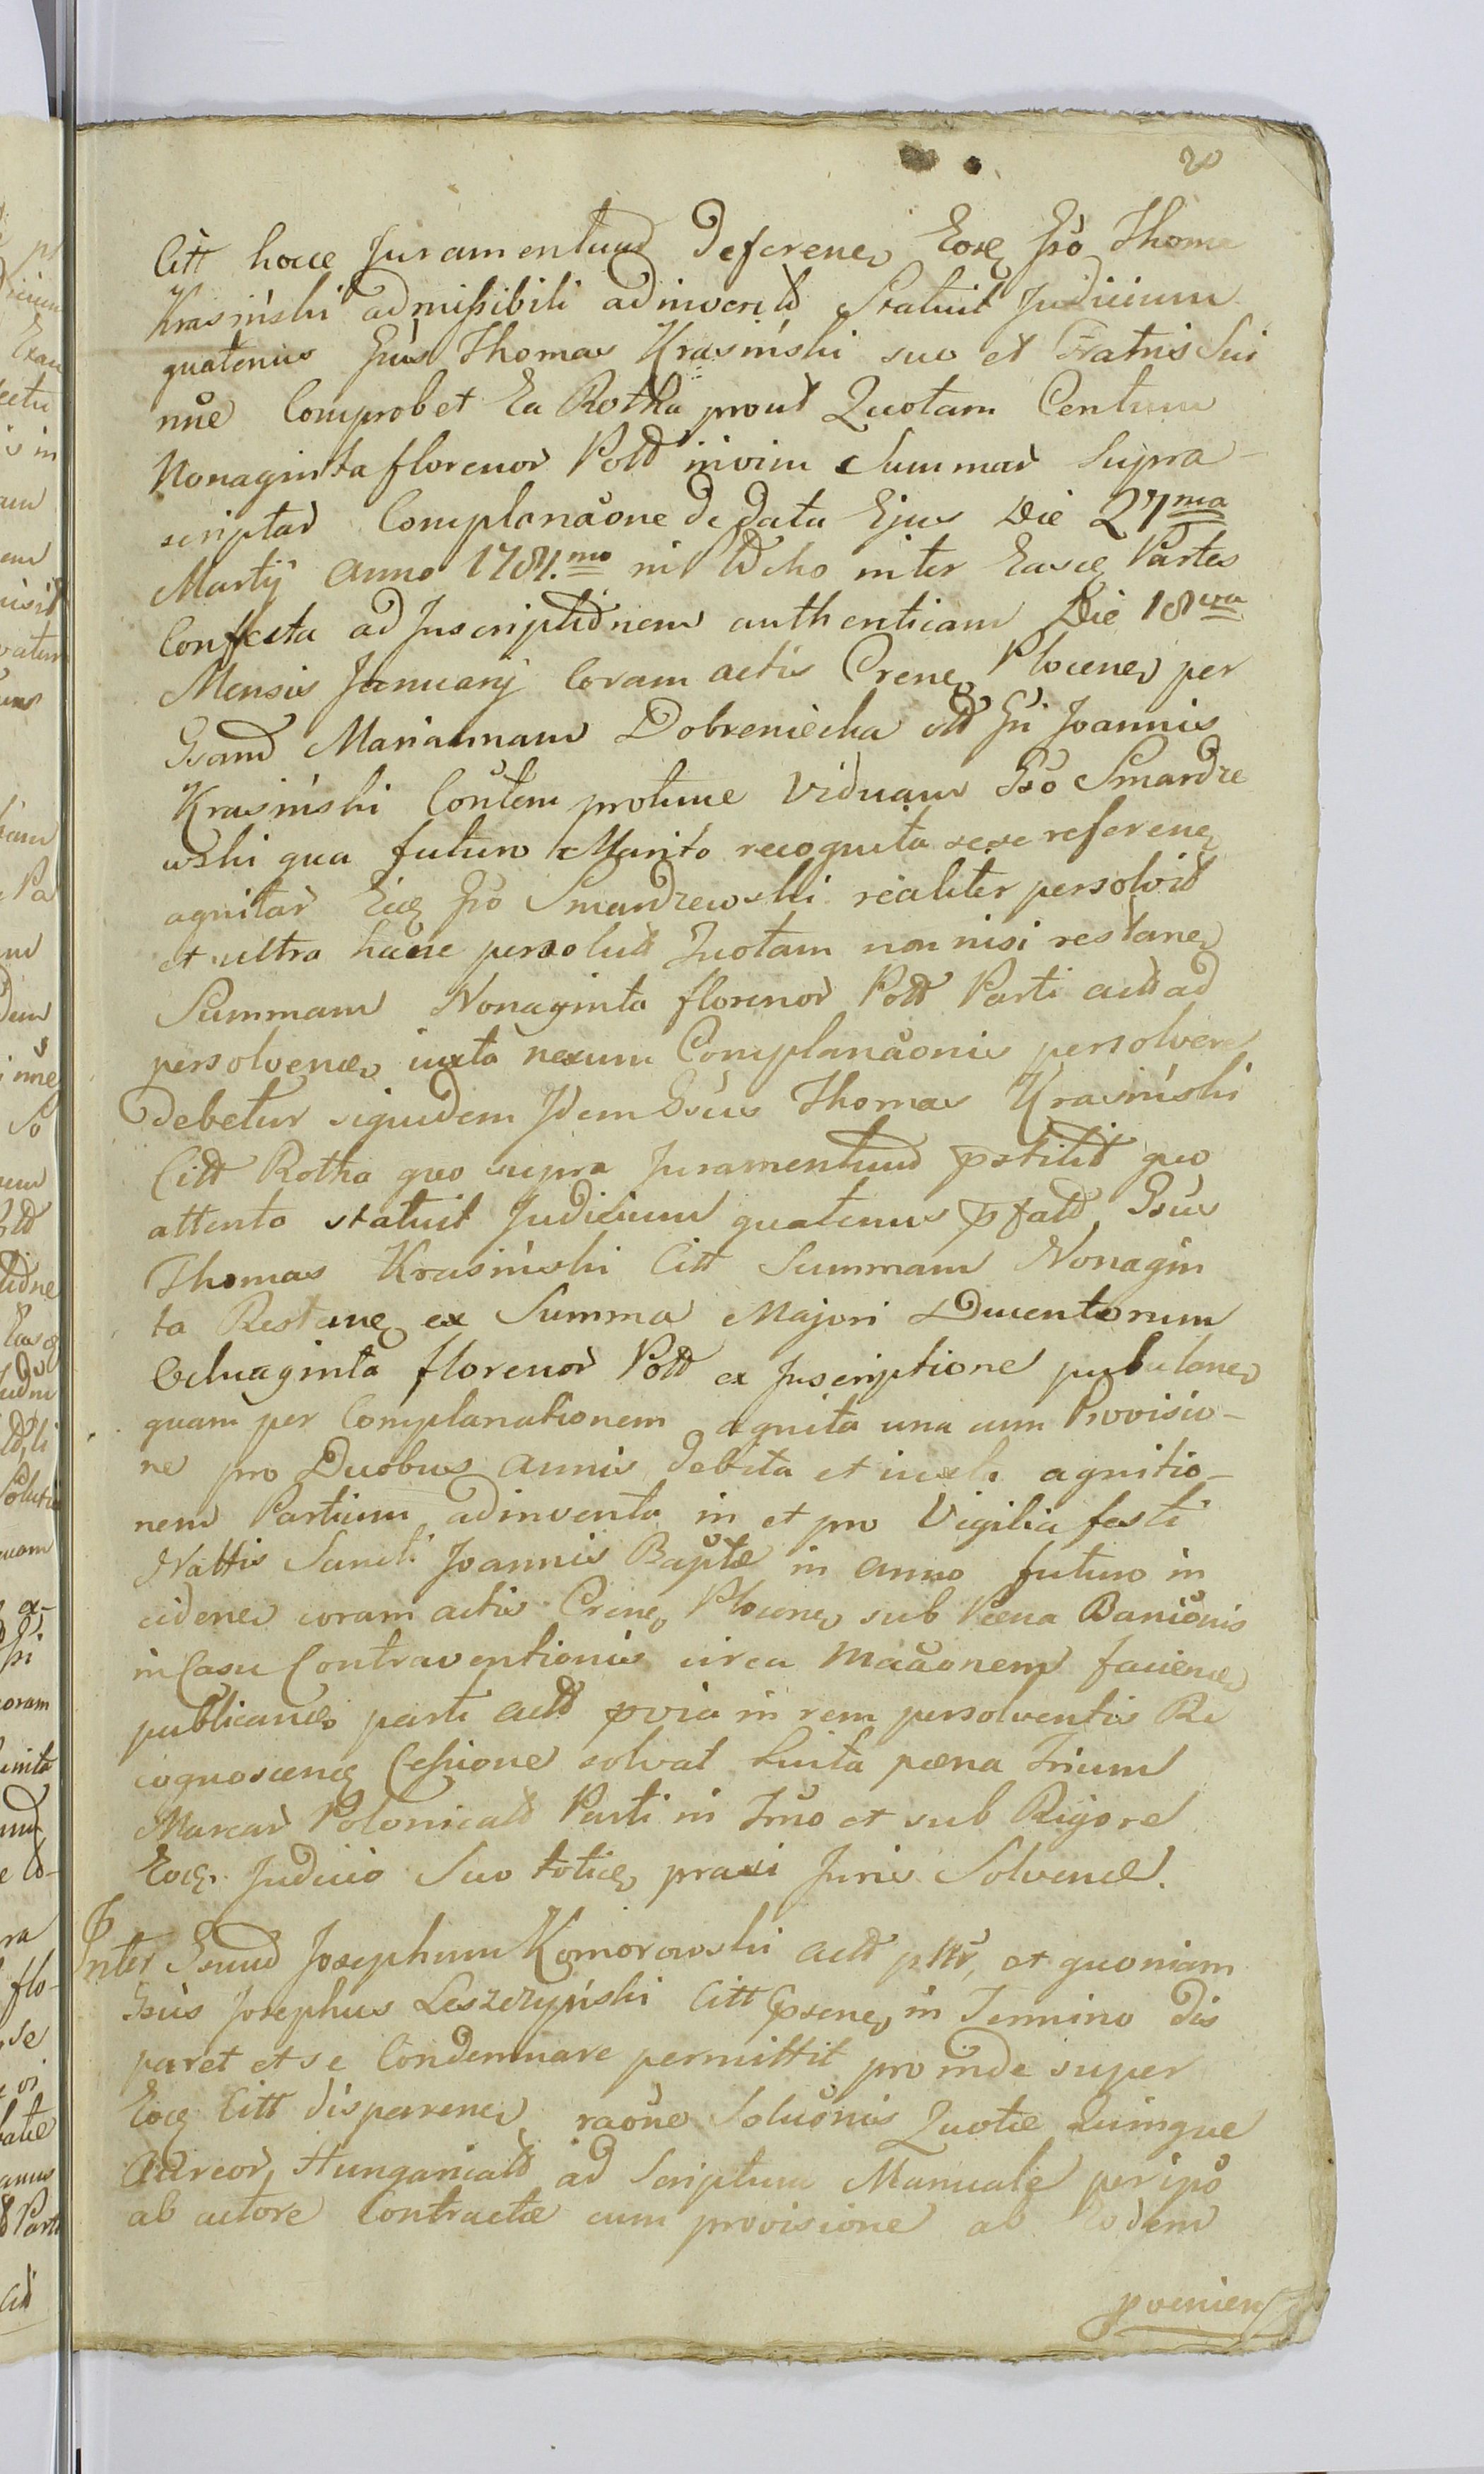 20
Citt hocce Juramentum Deferenē Eoꝫ Gso Thome
Krasiński admissibili adinvenit Statuit Judicium
quatenus Gsus Thomas Krasiński suo et Fratris Sui
nne Comprobet Ea Rotha prout Quotam Centum
Nonaginta florenor Poltt invim Summar Supra-
scriptar Complanaone de data Ejus Die 27ma
Martij Anno 1781.mo in inter Easq Partes
Confecta ad Inscriptionem authenticam Die 18va
Mensis Januarij Coram actis Crenē Plocenē per
Gsam Mariannam Dobreniecka ott Gsi Joannis
Krasiński Contem protunc Viduam Gso Smardze
wski qua futuro Marito recognita sese referenē
agnitar Eidē Gso Smardzewski realiter persolvit
et ultra hance persolut Quotam non nisi restanē
Summam Nonaginta florenor Poltt Parti actt ad
persolvendē iuxta nexum Complanaonis persolvere
debetur siquidem Idem Gsus Thomas Krasiński
Citt Rotha quo supra Juramentum pstitit quo
attento statuit Judicium quatenus pfatt Gsus
Thomas Krasiński Citt Summam Nonagin
ta Restanē ex Summa Majori Ducentorum
Octuaginta florenor Poltt ex Inscriptione
quam per Complanationem agnita una cum Provisio-
ne pro Duobus annis debita et iuxta agnitio-
nem Partium adinventa in et pro Vigilia festi
Nattis Sancti Joannis Baptæ in anno futuro in
cidenē coram actis Crenē Plocenē sub Poena Banionis
in Casu Contraventionis circa facienē
publicanē parti actt pvia in rem persolventis Re
cognoscenē Cessione solvat luita poena Trium
Marcar Polonicalt Parti in Tmo et sub Rigore
Eoꝫ Judicio Suo totiē praxi Juris Solvenē.
Inter Gsum Josephum Komorowski actt et quoniam
Gsus Josephus Leszczyński Citt psenē in Termino dis
paret et se Condemnare permittit proinde super
Eoꝫ Citt disparenē raone Soluonis Quotæ Quinque
Aureor Hungaricalt ad Scriptum Manuale per ipo
ab actore Contractæ cum provisione ab Eodem
pvenien